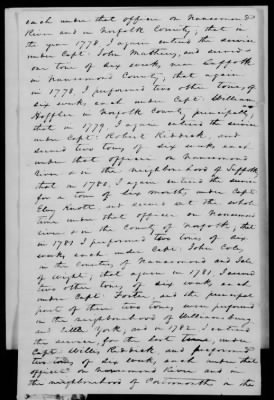 each under that officer on Nansemond
River and in Norfolk County; that in
the year 1778, I again entered the service
under Capt. John Matthews, and served
one tour of six weeks, near Suffolk
in Nansemond County; that again
in 1778, I performed two other tours, of
six weeks each under Capt. William
in Norfolk County principally;
that in 1779, I again entered the service
under Capt. Robert Riddick, and
served two tours of six weeks each
under that officer on Nansemond
river & in the neighbourhood of Suffolk;
that in 1780, I again entered the service
for a tour of six months, under Capt.
and served out the whole
time under that officer on Nansemond
river & in the County of Norfolk; that
in 1781 I performed two tours of six
weeks each under Capt. John Cole,
in the Counties of Nansemond and Isle
of Wight; that again in 1781, I served
two other tours, of six weeks each
under Capt. Foster, and the principal
part of these two tours were performed
in the neighbourhood of Williamsburg
and Little York; and in 1782, I entered
the service, for the last time, under
Capt. Willis Riddick, and performed
two tours of six weeks, each under that
officer on Nansemond River and in
the neighbourhood of Portsmouth in the